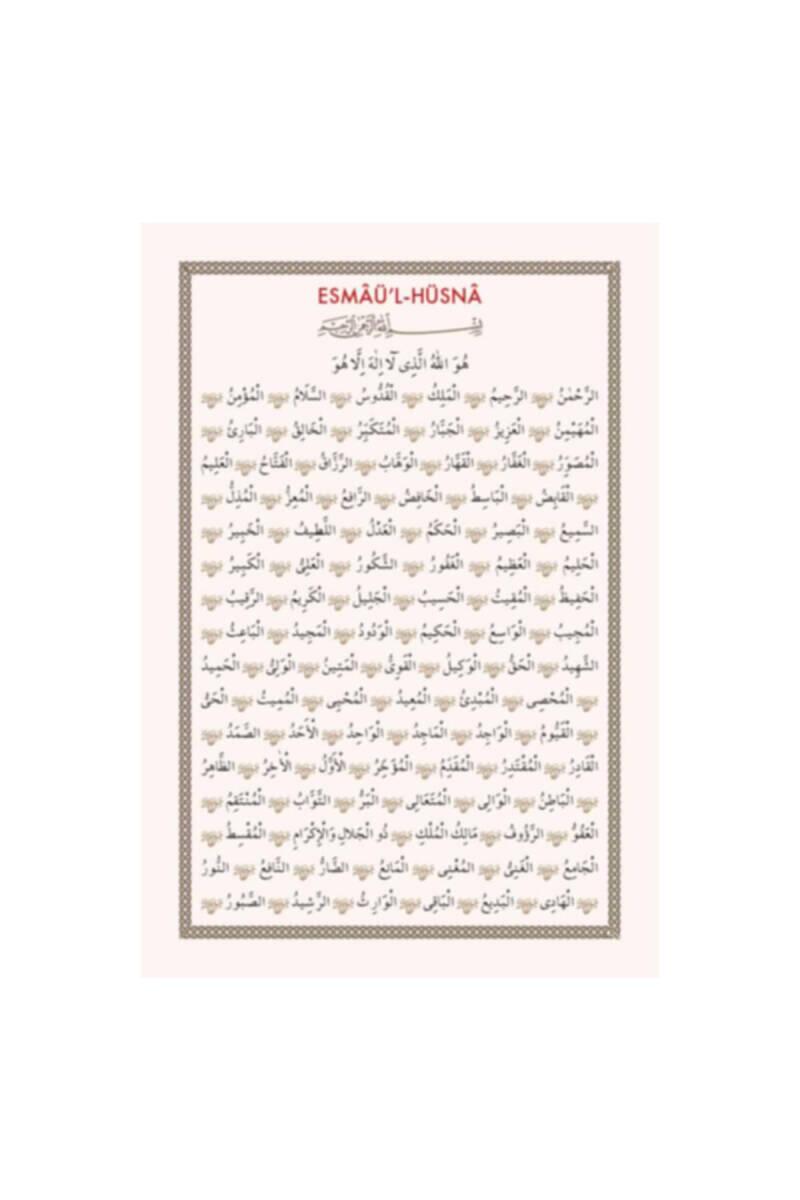 ESMÂÜ'L-HÜSNÂ
بِسْمِ اللهِ الرَّحْمٰنِ الرَّحِيمِ
هُوَ اللهُ الَّذِى لَا اِلٰهَ اِلَّا هُوَ
الرَّحْمٰنُ الرَّحِيمُ الْمَلِكُ الْقُدُّوسُ السَّلَامُ الْمُؤْمِنُ
الْمُهَيْمِنُ الْعَزِيزُ الْجَبَّارُ الْمُتَكَبِّرُ الْخَالِقُ الْبَارِئُ
الْمُصَوِّرُ الْغَفَّارُ الْقَهَّارُ الْوَهَّابُ الرَّزَّاقُ الْفَتَّاحُ الْعَلِيمُ
الْقَابِضُ الْبَاسِطُ الْخَافِضُ الرَّافِعُ الْمُعِزُّ الْمُذِلُّ
السَّمِيعُ الْبَصِيرُ الْحَكَمُ الْعَدْلُ اللَّطِيفُ الْخَبِيرُ
الْحَلِيمُ الْعَظِيمُ الْغَفُورُ الشَّكُورُ الْعَلِىُّ الْكَبِيرُ
الْحَفِيظُ الْمُقِيتُ الْحَسِيبُ الْجَلِيلُ الْكَرِيمُ الرَّقِيبُ
الْمُجِيبُ الْوَاسِعُ الْحَكِيمُ الْوَدُودُ الْمَجِيدُ الْبَاعِثُ
الشَّهِيدُ الْحَقُّ الْوَكِيلُ الْقَوِىُّ الْمَتِينُ الْوَلِىُّ الْحَمِيدُ
الْمُحْصِى الْمُبْدِئُ الْمُعِيدُ الْمُحْيِى الْمُمِيتُ الْحَىُّ
الْقَيُّومُ الْوَاجِدُ الْمَاجِدُ الْوَاحِدُ الْأَحَدُ الصَّمَدُ
الْقَادِرُ الْمُقْتَدِرُ الْمُقَدِّمُ الْمُؤَخِّرُ الْأَوَّلُ الْأٰخِرُ الظَّاهِرُ
الْبَاطِنُ الْوَالِى الْمُتَعَالِى الْبَرُّ التَّوَّابُ الْمُنْتَقِمُ
الْعَفُوُّ الرَّؤُوفُ مَالِكُ الْمُلْكِ ذُو الْجَلَالِ وَالْإِكْرَامِ الْمُقْسِطُ
الْجَامِعُ الْغَنِىُّ الْمُغْنِى الْمَانِعُ الضَّارُّ النَّافِعُ النُّورُ
الْهَادِى الْبَدِيعُ الْبَاقِى الْوَارِثُ الرَّشِيدُ الصَّبُورُ